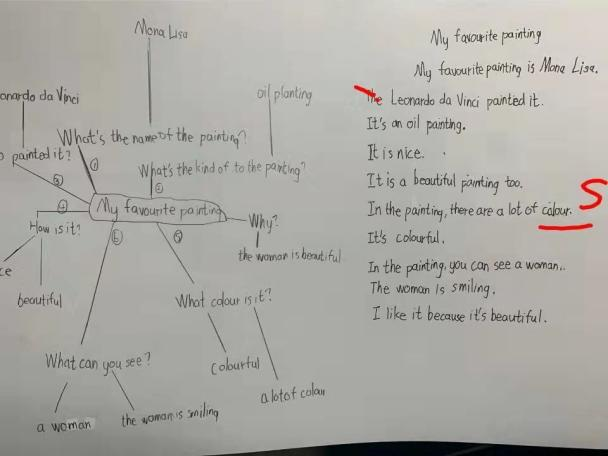 Mona Lisa
onardo da Vinci
oil planting
What's the name of the painting?
o painted it?
①
What's the kind of to the panting?
③
②
My favourite painting
④
How is it?
Why?
⑥
⑤
the woman is beautiful
ce
beautiful
What colour is it?
What can you see?
colourful
a lot of colour
a woman
the woman is smiling
My favourite painting
My favourite painting is Mona Lisa.
The Leonardo da Vinci painted it.
It's an oil painting.
It is nice.
It is a beautiful painting too.
In the painting, there are a lot of colour. S
It's colourful.
In the painting, you can see a woman.
The woman is smiling.
I like it because it's beautiful.